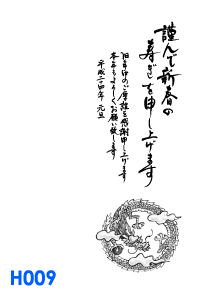 謹んで新春の
寿ぎを申し上げます
旧年中のご厚誼を感謝申し上げます
本年もよろしくお願い致します
平成二十四年 元旦
H009